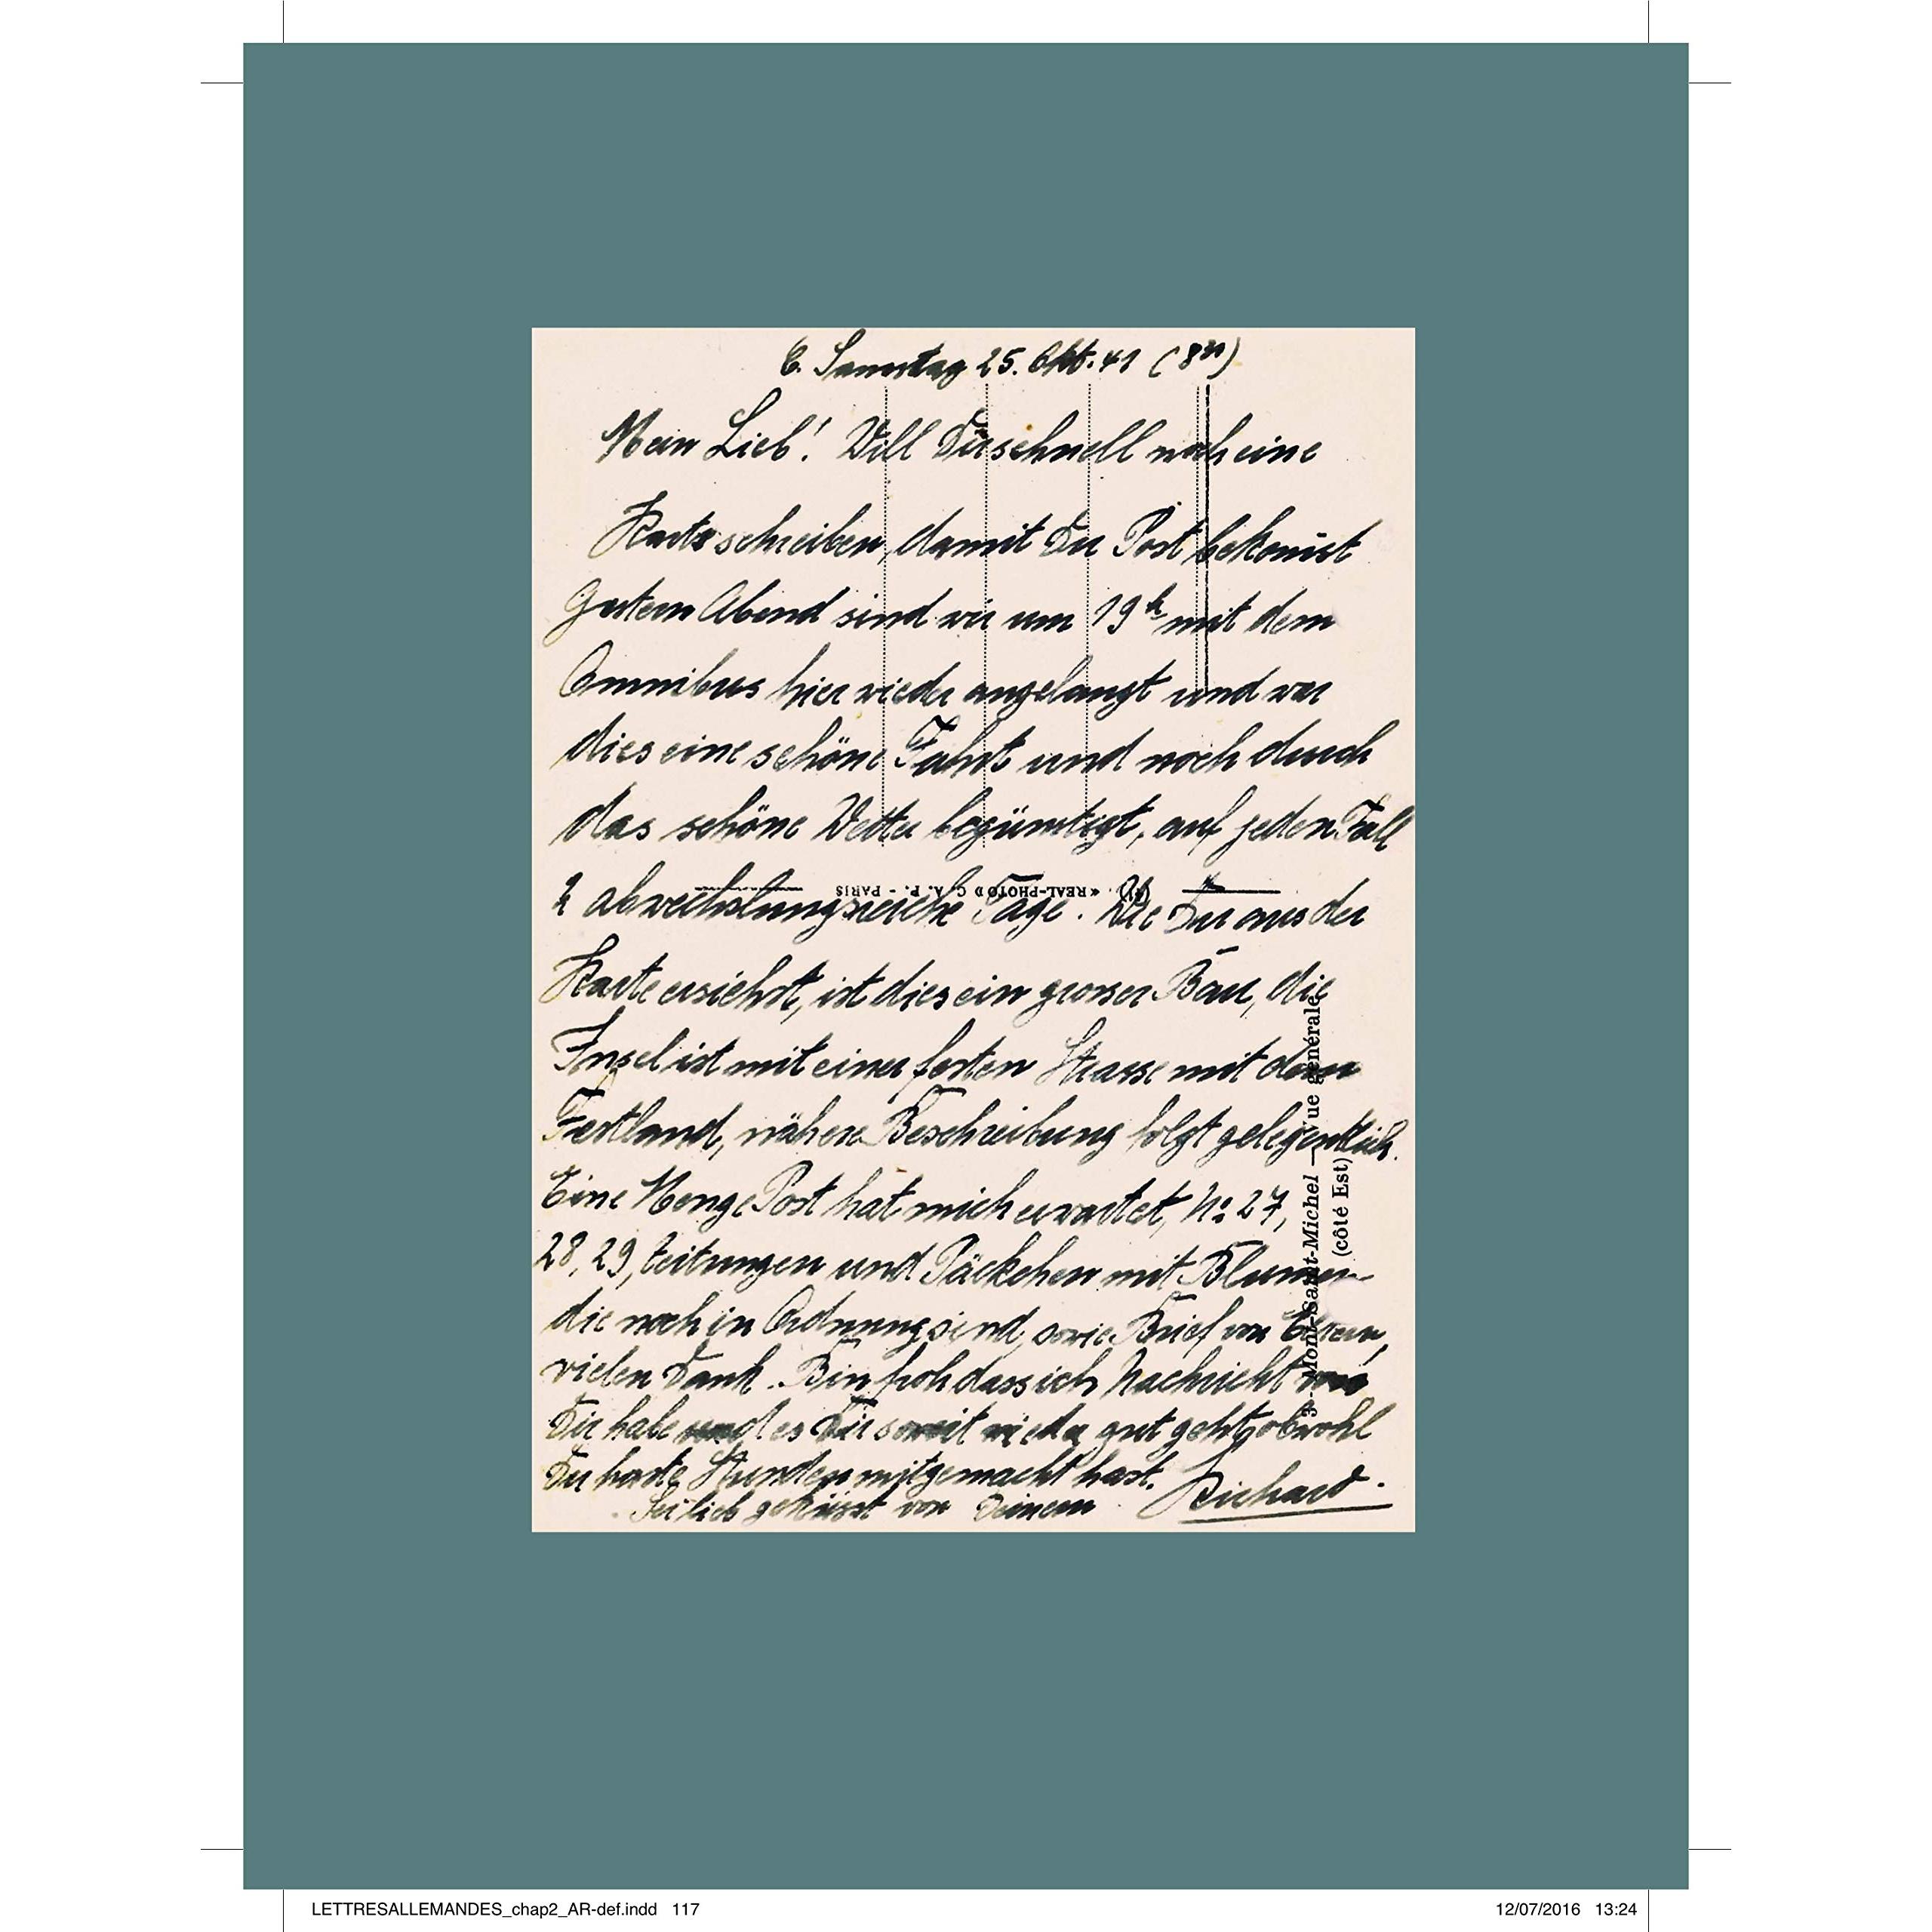 C. Samstag 25. Okt. 41 (8³⁰)
Mein Lieb! Will Dir schnell noch eine
Karte schreiben, damit Du Post bekomst
Gestern Abend sind wir um 19ʰ mit dem
Omnibus hier wieder angelangt und war
dies eine schöne Fahrt und noch durch
das schöne Wetter begünstigt, auf jeden Fall
2 abwechslungsreiche Tage. Wie Du aus der
Karte ersiehst, ist dies ein grosser Bau, die
Insel ist mit einer festen Strasse mit dem
Festland, nähere Beschreibung folgt gelegentlich.
Eine Menge Post hat mich erwartet, No 27,
28, 29, Zeitungen und Päckchen mit Blumen
die noch in Ordnung sind, sowie Brief von
vielen Dank. Bin froh dass ich Nachricht von
Dir habe und es Dir soweit wieder gut geht, obwohl
Du harte Stunden mitgemacht hast.
Sei lieb geküsst von Deinem Richard.
« REAL-PHOTO » C. A. P. - PARIS
3 - Mont-Saint-Michel — Vue générale
(côté Est)
LETTRESALLEMANDES_chap2_AR-def.indd 117
12/07/2016 13:24